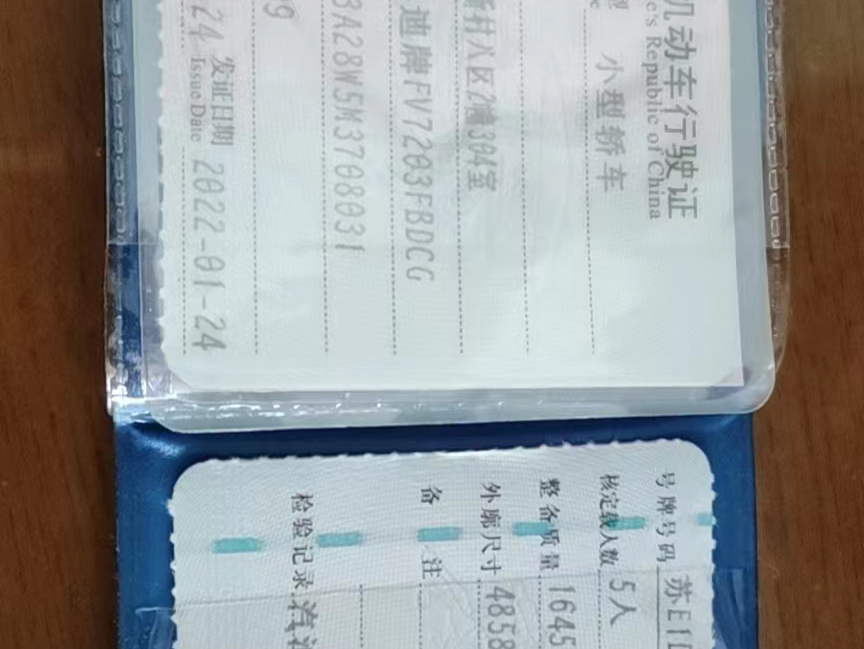 机动车行驶证
e's Republic of China
小型轿车
新村八区2幢304室
迪牌FV7203FBDCG
3A28W5M3708031
9
24 发证日期 2022-01-24
Issue Date
号牌号码 苏E1
核定载人数 5人
整备质量 1645
外廓尺寸 4858
备 注
检验记录 汽油